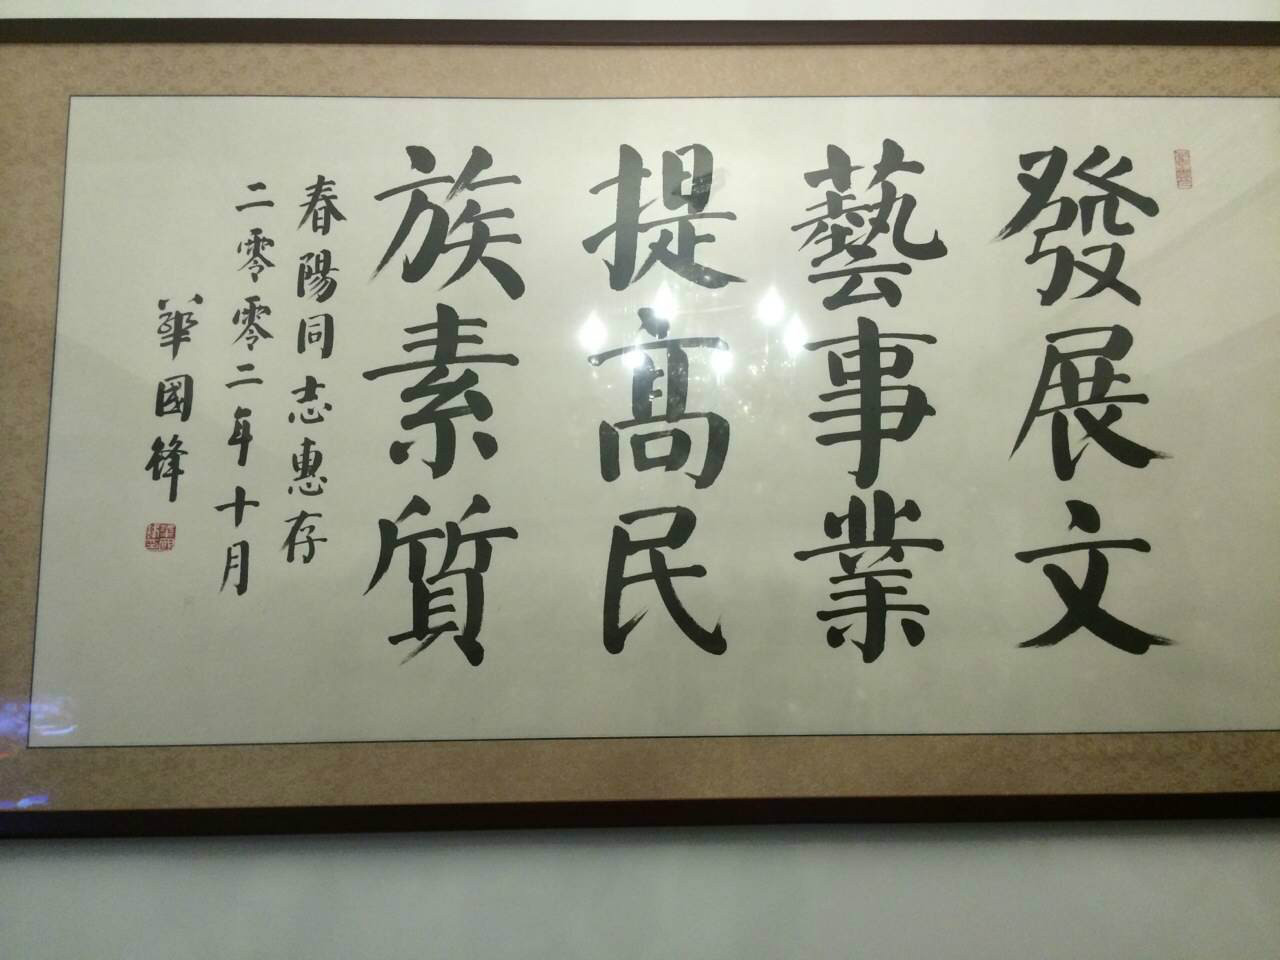 發展文
藝事業
提高民
族素質
春陽同志惠存
二零零二年十月
華國鋒